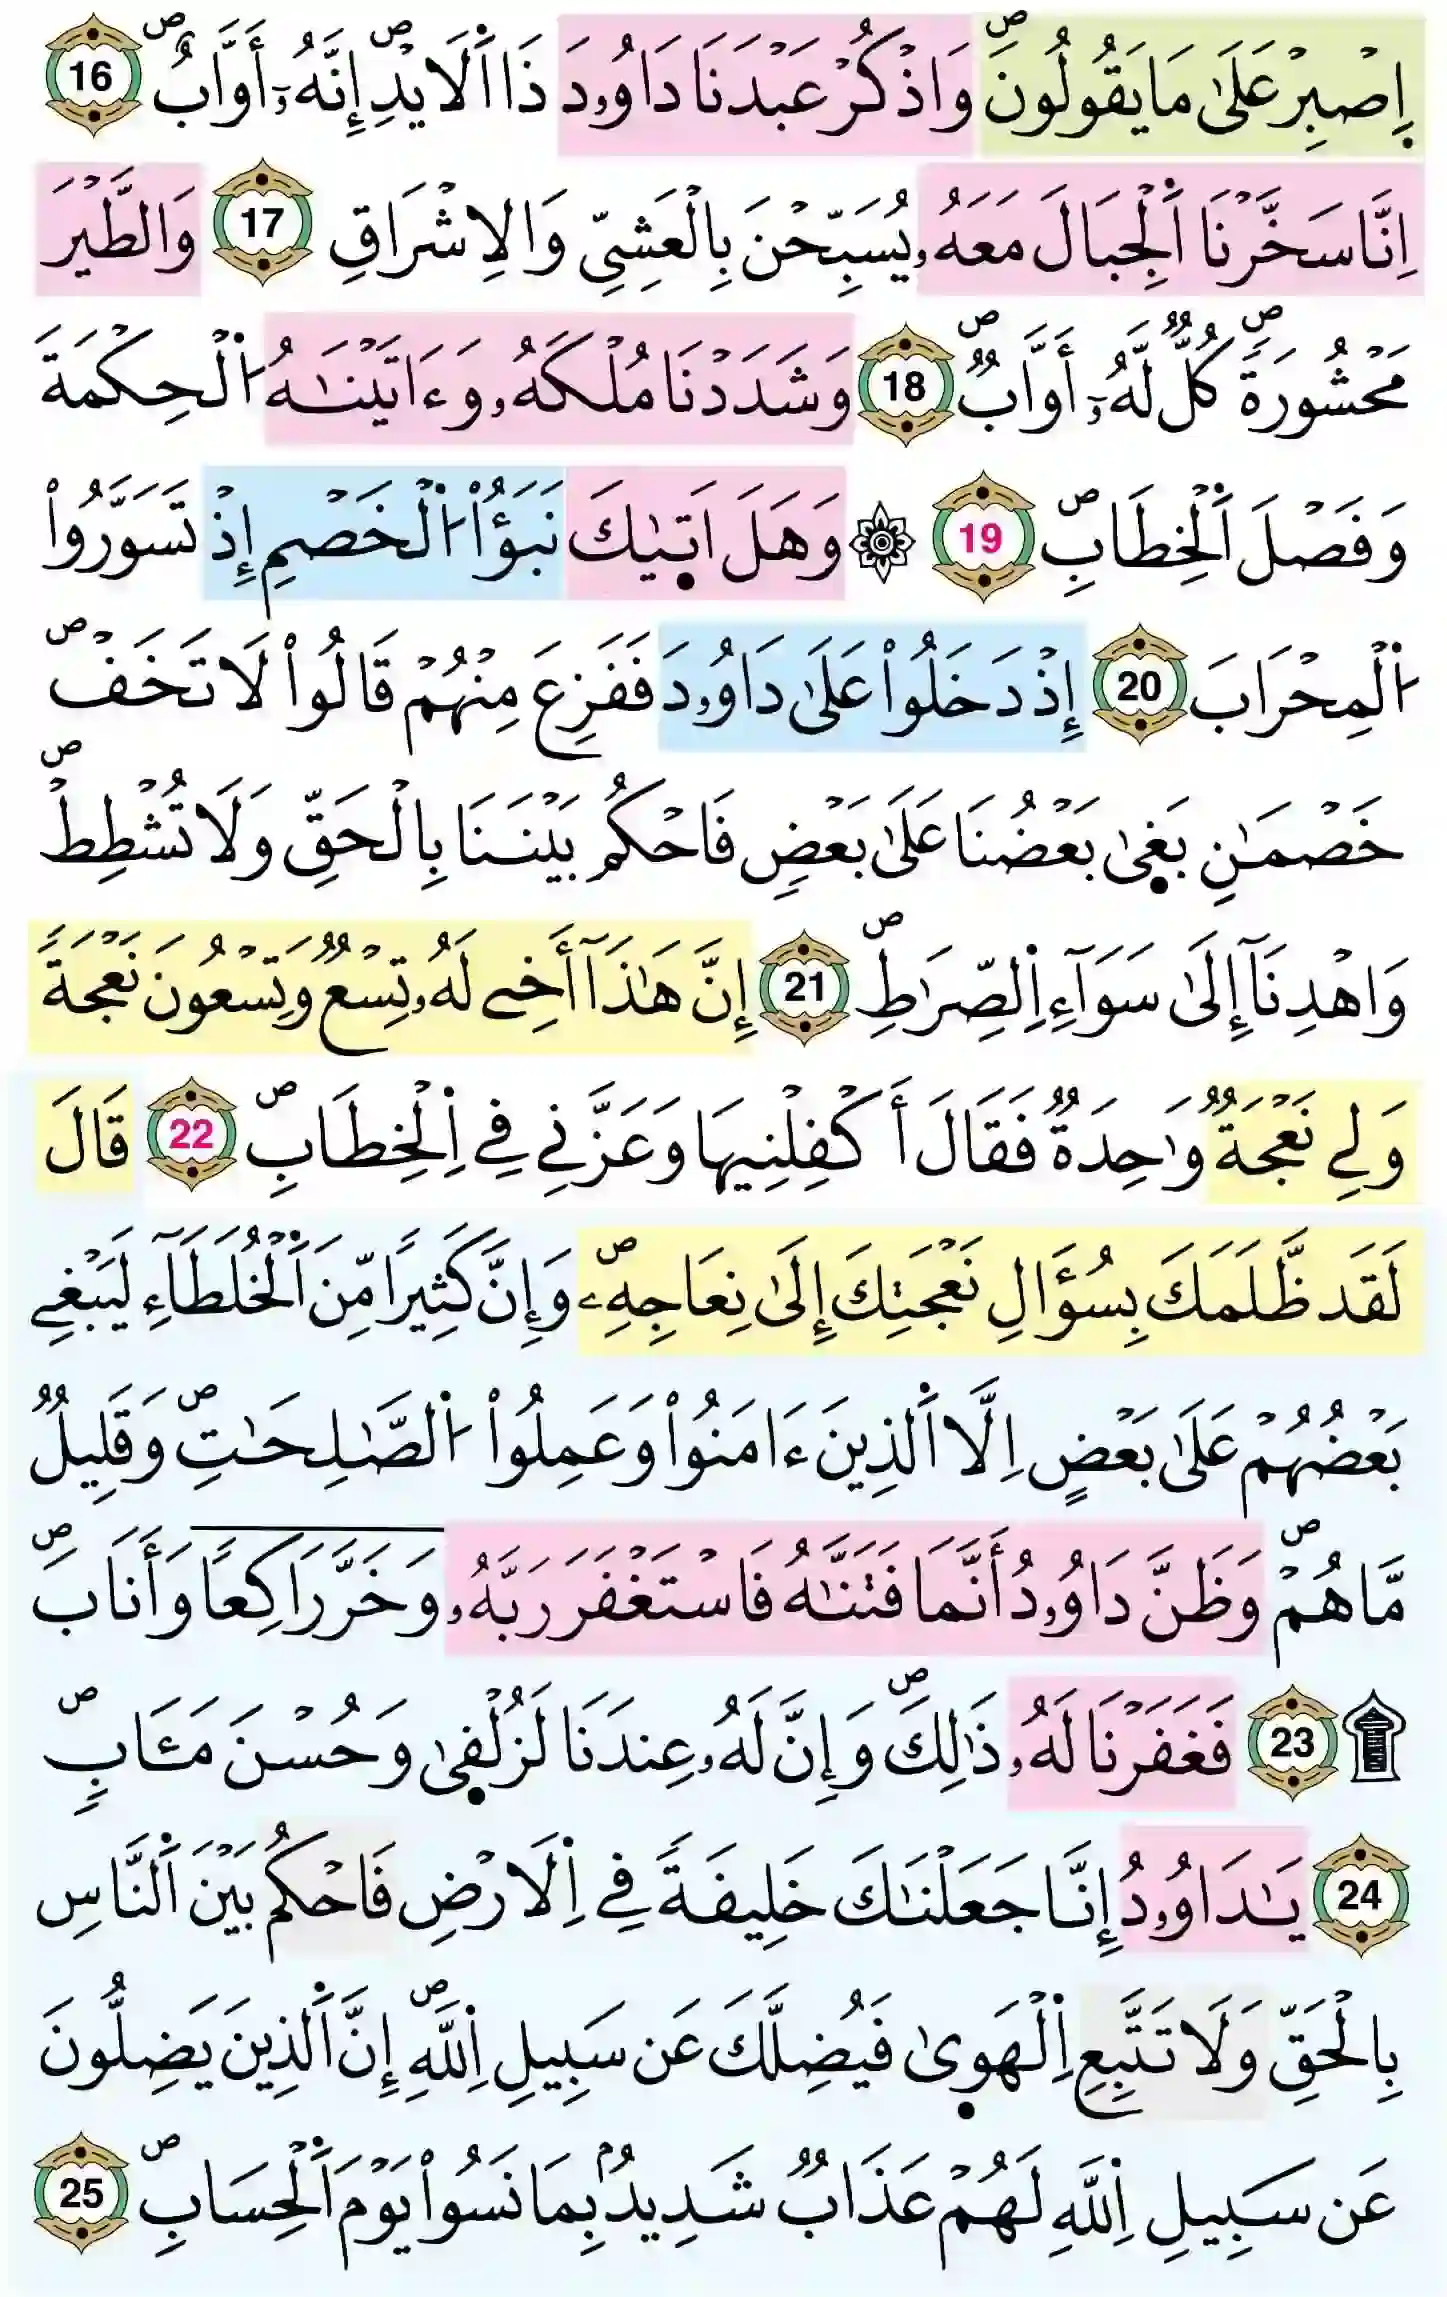 اِ۪صْبِرْ عَلَىٰ مَا يَقُولُونَۖ وَاذْكُرْ عَبْدَنَا دَاوُۥدَ ذَا اَ۬لَايْدِۖ إِنَّهُۥٓ أَوَّابٌۖ 16
اِنَّا سَخَّرْنَا اَ۬لْجِبَالَ مَعَهُۥ يُسَبِّحْنَ بِالْعَشِيِّ وَالِاشْرَاقِ 17 وَالطَّيْرَ
مَحْشُورَةٗۖ كُلّٞ لَّهُۥٓ أَوَّابٞۖ 18 وَشَدَدْنَا مُلْكَهُۥ وَءَاتَيْنَٰهُ اُ۬لْحِكْمَةَ
وَفَصْلَ اَ۬لْخِطَابِۖ 19 ۞ وَهَلَ اَت۪يٰكَ نَبَؤُاْ اُ۬لْخَصْمِ إِذْ تَسَوَّرُواْ
اُ۬لْمِحْرَابَ 20 إِذْ دَخَلُواْ عَلَىٰ دَاوُۥدَ فَفَزِعَ مِنْهُمْ قَالُواْ لَا تَخَفْۖ
خَصْمَٰنِ بَغ۪ىٰ بَعْضُنَا عَلَىٰ بَعْضٖ فَاحْكُم بَيْنَنَا بِالْحَقِّ وَلَا تُشْطِطْۖ
وَاهْدِنَآ إِلَىٰ سَوَآءِ اِ۬لصِّرَٰطِۖ 21 إِنَّ هَٰذَآ أَخِے لَهُۥ تِسْعٞ وَتِسْعُونَ نَعْجَةٗ
وَلِے نَعْجَةٞ وَٰحِدَةٞ فَقَالَ أَكْفِلْنِيهَا وَعَزَّنِے فِے اِ۬لْخِطَابِۖ 22 قَالَ
لَقَد ظَّلَمَكَ بِسُؤَالِ نَعْجَتِكَ إِلَىٰ نِعَاجِهِۦۖ وَإِنَّ كَثِيراٗ مِّنَ اَ۬لْخُلَطَآءِ لَيَبْغِے
بَعْضُهُمْ عَلَىٰ بَعْضٍ اِلَّا اَ۬لذِينَ ءَامَنُواْ وَعَمِلُواْ اُ۬لصَّٰلِحَٰتِۖ وَقَلِيلٞ
مَّا هُمْۖ وَظَنَّ دَاوُۥدُ أَنَّمَا فَتَنَّٰهُ فَاسْتَغْفَرَ رَبَّهُۥ وَخَرَّ رَاكِعاٗ وَأَنَابَۖ
۩ 23 فَغَفَرْنَا لَهُۥ ذَٰلِكَۖ وَإِنَّ لَهُۥ عِندَنَا لَزُلْف۪ىٰ وَحُسْنَ مَـَٔابٖۖ
24 يَٰدَاوُۥدُ إِنَّا جَعَلْنَٰكَ خَلِيفَةٗ فِے اِ۬لَارْضِ فَاحْكُم بَيْنَ اَ۬لنَّاسِ
بِالْحَقِّ وَلَا تَتَّبِعِ اِ۬لْهَو۪ىٰ فَيُضِلَّكَ عَن سَبِيلِ اِ۬للَّهِۖ إِنَّ اَ۬لذِينَ يَضِلُّونَ
عَن سَبِيلِ اِ۬للَّهِ لَهُمْ عَذَابٞ شَدِيدُۢ بِمَا نَسُواْ يَوْمَ اَ۬لْحِسَابِۖ 25